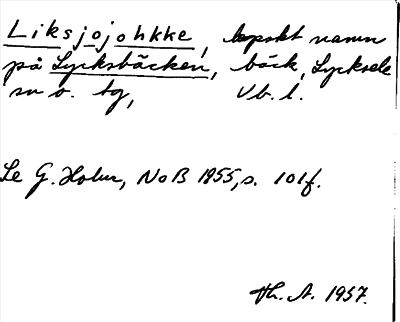 Liksjojohkke, lapskt namn
på Lycksbäcken, bäck, Lycksele
sn o. tg, Vb. l.
Se G. Holm, NoB 1955, s. 101f.
Th. A. 1957.